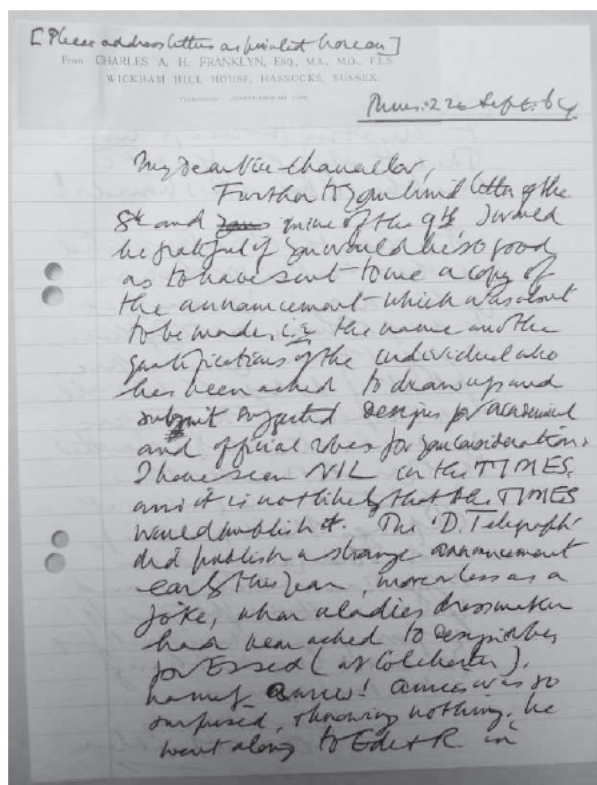 [Please address letters as printed hereon]
From CHARLES A. H. FRANKLYN, ESQ., M.A., M.D., F.L.S.
WICKHAM HILL HOUSE, HASSOCKS, SUSSEX.
Thurs: 22 Sept. 64
My dear Vice-Chancellor,
Further to your kind letter of the
8th and mine of the 9th, I would
be grateful if you would be so good
as to have sent to me a copy of
the announcement which was about
to be made, i.e. the name and the
qualifications of the individual who
has been asked to draw up and
submit suggested designs for academical
and official robes for your consideration.
I have seen NIL in the TIMES,
and it is not likely that the TIMES
would publish it. The 'D. Telegraph'
did publish a strange announcement
early this year, more or less as a
joke, when a ladies dressmaker
had been asked to design robes
for Essex (at Colchester),
named! was so
surprised, knowing nothing, he
went along to Ede & R. in